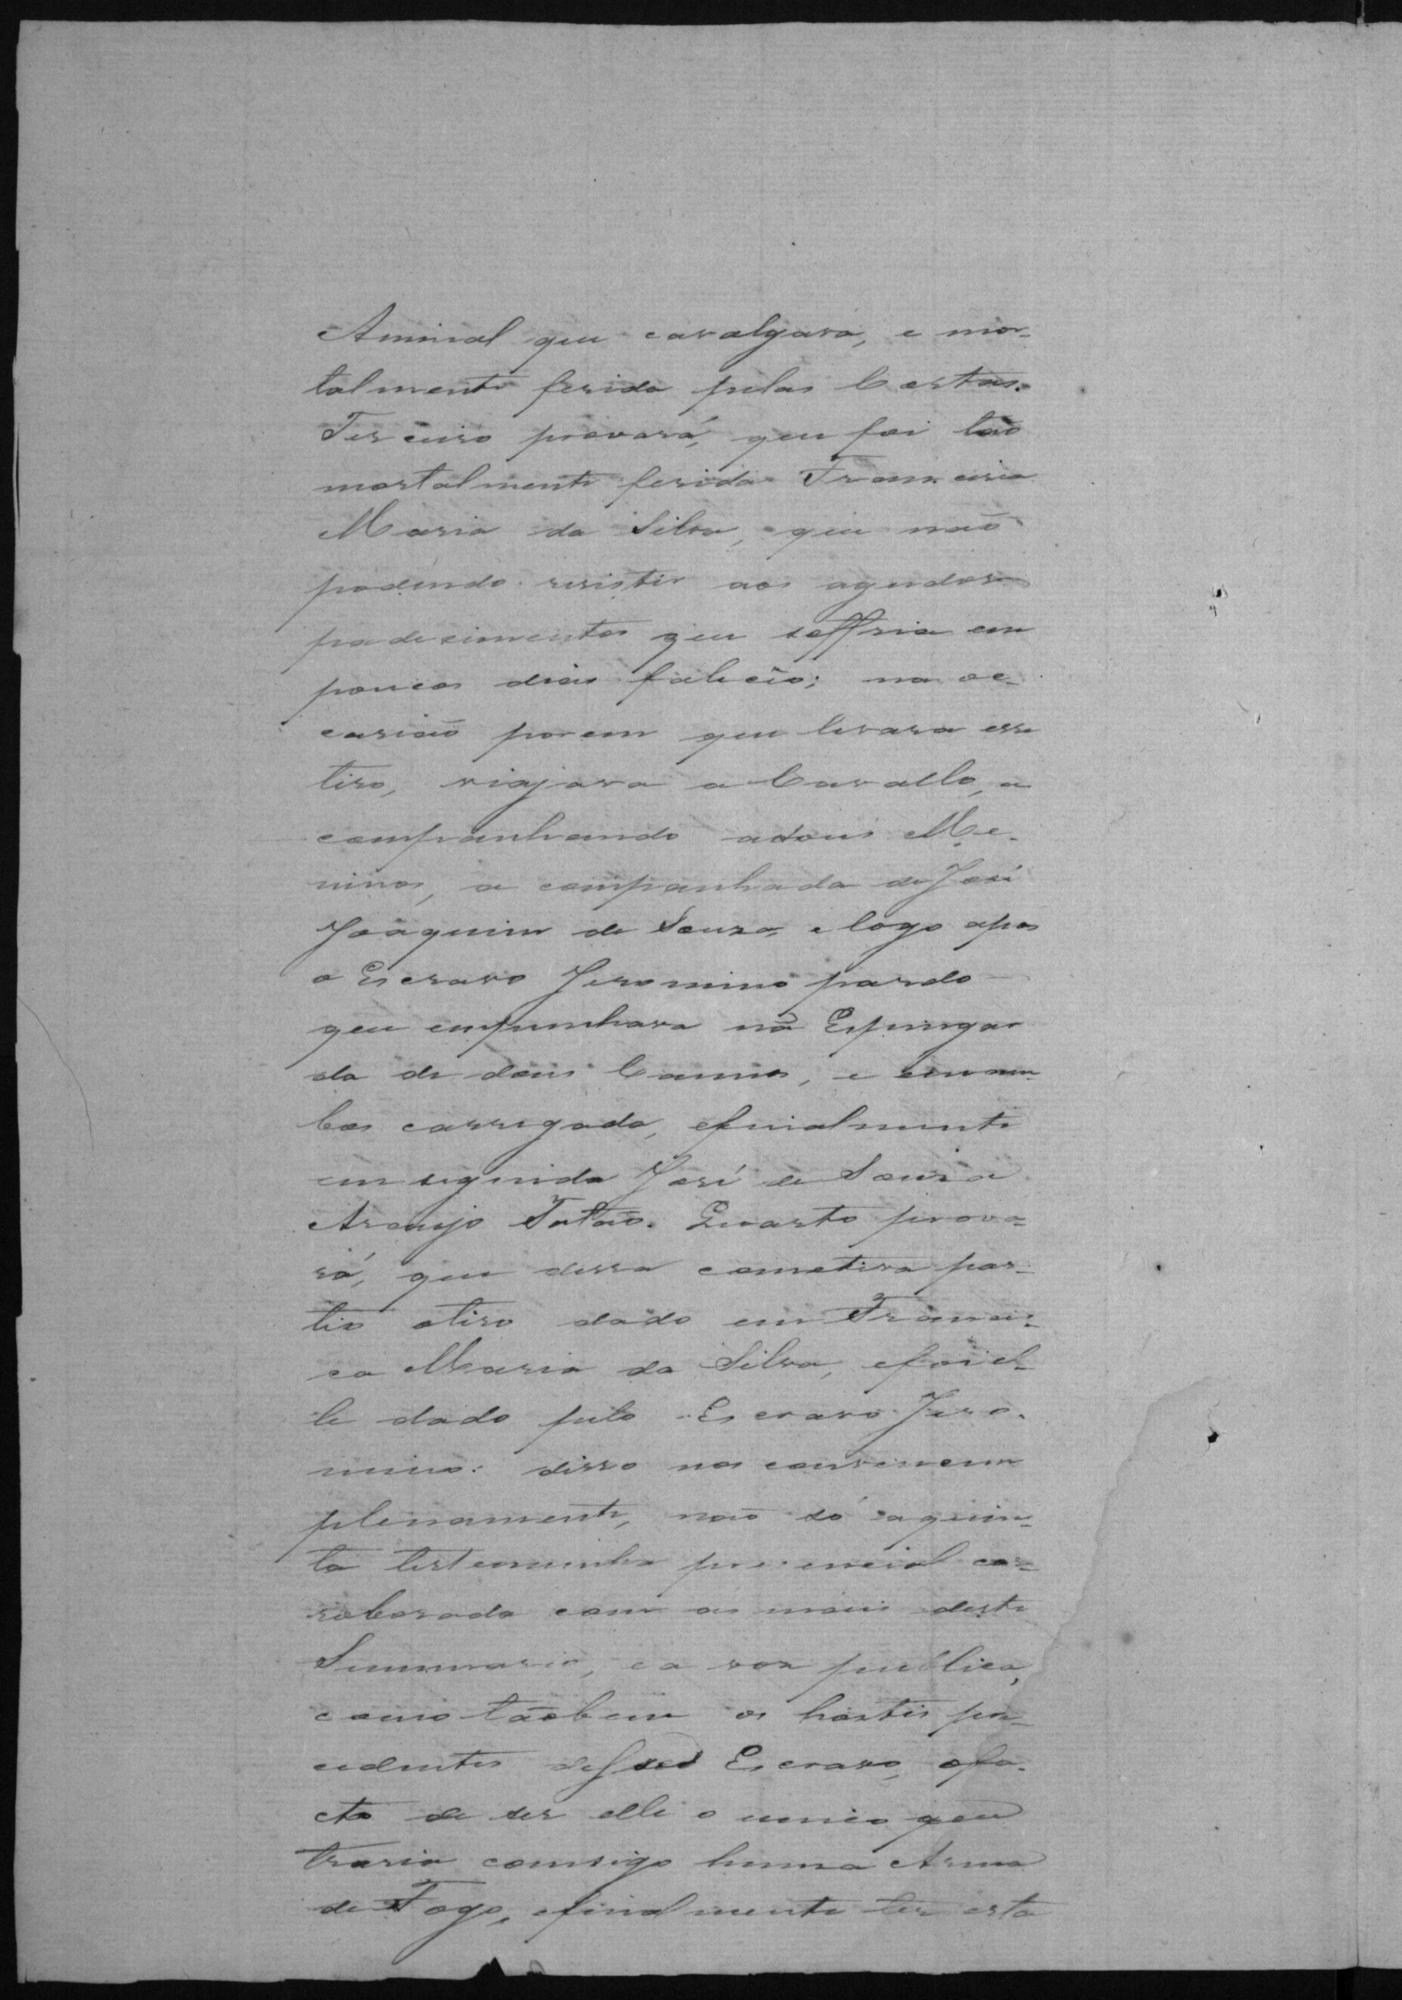 Animal que cavalgava, e mor-
talmente ferida pelas Costas.
Terceiro provará, que foi tão
mortalmente ferida Francisca
Maria da Silva, que não
podendo resistir aos agudos
padecimentos que soffria em
poucos dias faleceo; na oc-
casião porem que levara esse
tiro, viajava a Cavallo, a
companhando a dous Me-
ninos, a companhada de José
Joaquim de Souza, e logo apos
o Escravo Jeronimo pardo
que empunhava ũa Espingar
da de dous Cannos, e em am-
bos carregada, efinalmente
em seguida José de Souza
Araujo Tatão. Quarto prova-
rá, que dessa cometiva par-
tio otiro dado em Francis-
ca Maria da Silva, efoi el-
le dado pelo Escravo Jero-
nimo: disso nos convencem
plenamente, não só aquin-
ta testemunha presencial cor-
roborada com as mais deste
Summario, ea voz publica,
como tãobem os hostis pre-
cedentes desse Escravo, ofa-
cto de ser elle o unico que
trazia comsigo huma Arma
de Fogo, efinalmente ter esta